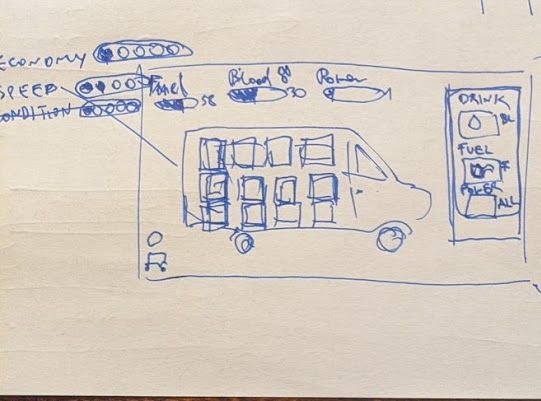 ECONOMY
SPEED
CONDITION
Fuel 58
Blood 30
Power 1
DRINK
BL
FUEL
F
POWER
ALL